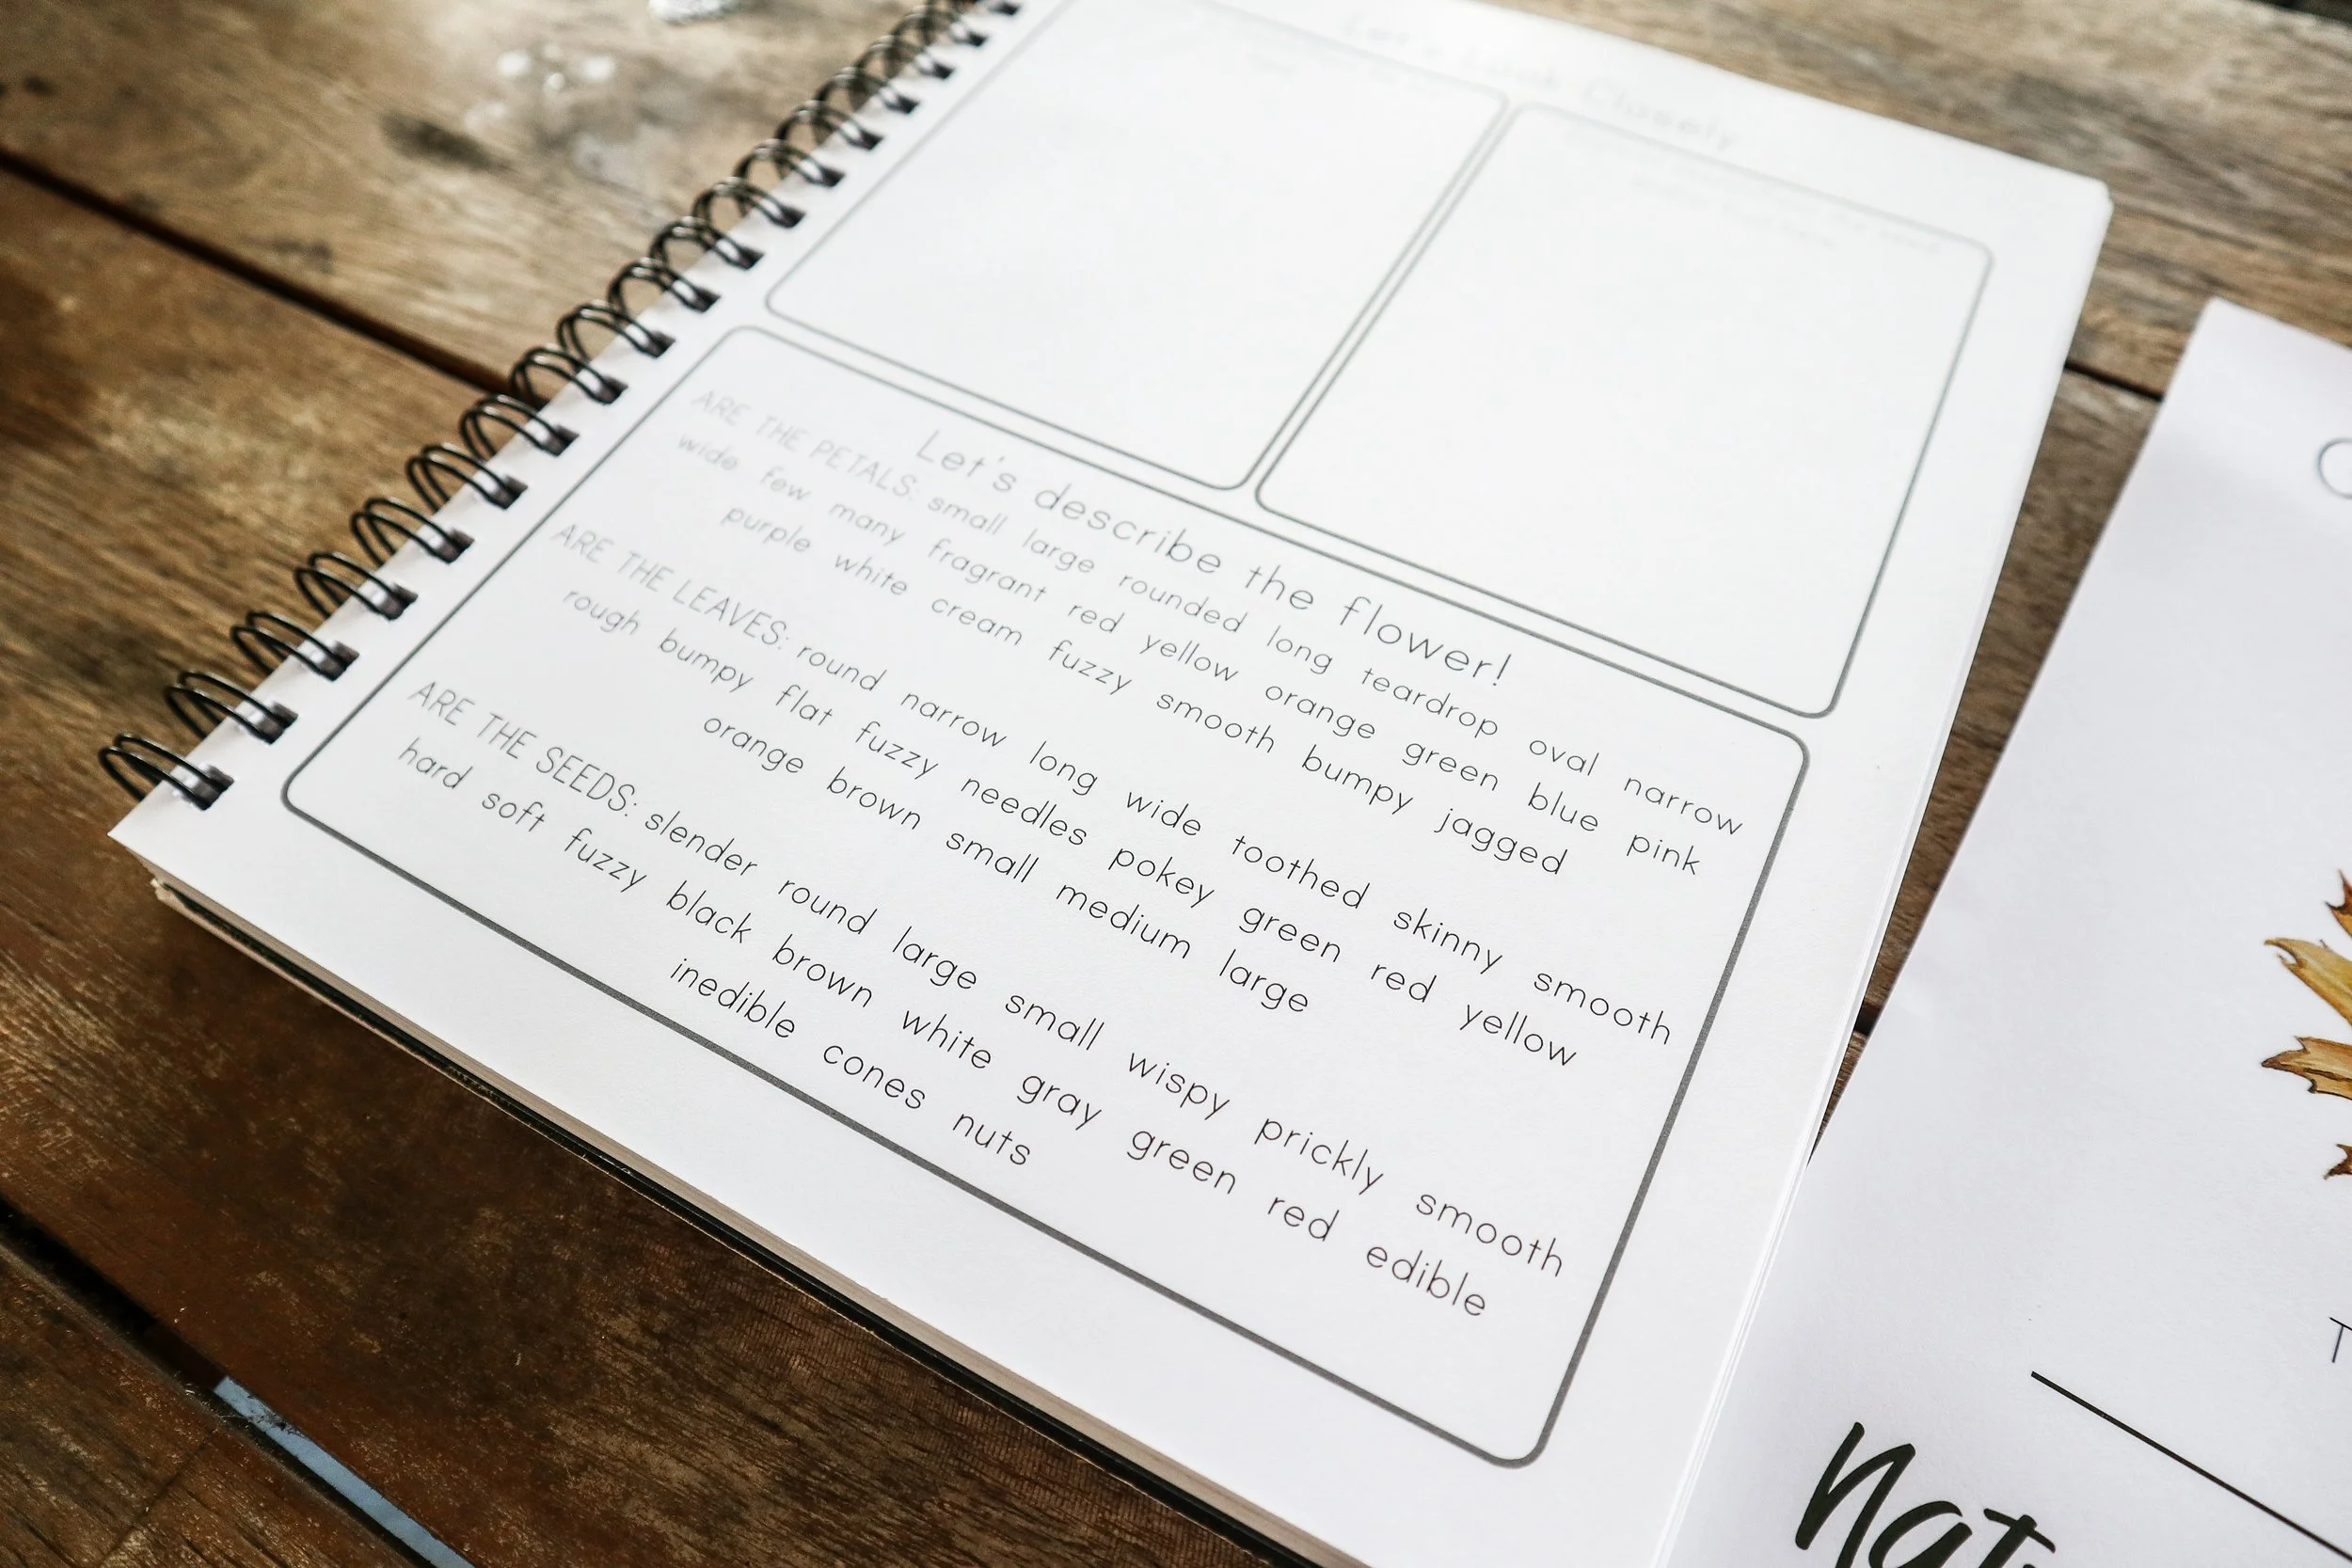 Let's Look Closely
Let's describe the flower!
ARE THE PETALS: small large rounded long teardrop oval narrow
wide few many fragrant red yellow orange green blue pink
purple white cream fuzzy smooth bumpy jagged
ARE THE LEAVES: round narrow long wide toothed skinny smooth
rough bumpy flat fuzzy needles pokey green red yellow
orange brown small medium large
ARE THE SEEDS: slender round large small wispy prickly smooth
hard soft fuzzy black brown white gray green red edible
inedible cones nuts